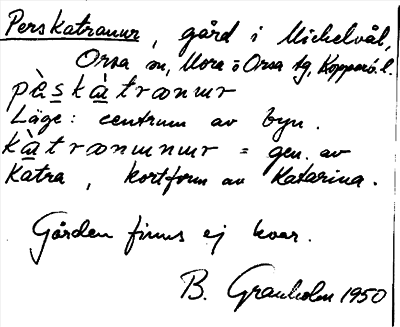 Perskatranur, gård i Michelvål,
Orsa sn, Mora o Orsa tg, Kopparb. l.
pä̀skàtrænuɪr
Läge: centrum av byn.
kàtrænunuɪr = gen. av
Katra, kortform av Katarina.
Gården finns ej kvar.
B. Granholm 1950